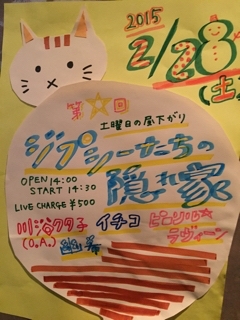 2015
2/28
(土)
第☆回
土曜日の昼下がり
ジプシーたちの
隠れ家
OPEN 14:00
START 14:30
LIVE CHARGE ¥500
イチコ
(O.A.)
ラヴィーン